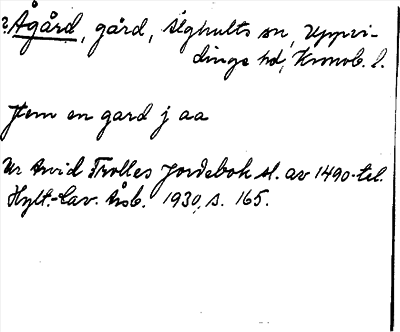 ? Ågård, gård, Älghults sn, Uppvi-
dinge hd, Kronob. l.
Jtem en gard j aa
Ur Arvid Trolles Jordebok sl. av 1490-tal.
Hylt.-Cav. Årsb. 1930, s. 165.